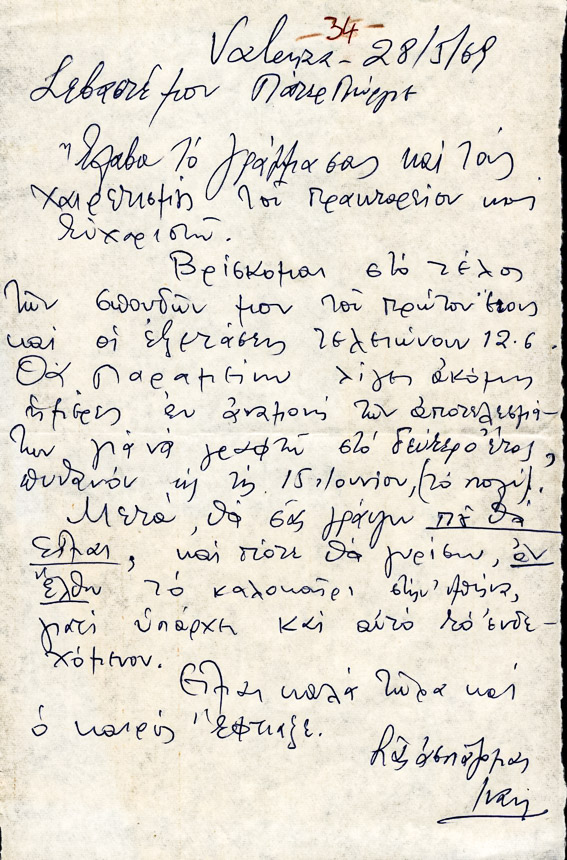 -34-
Valenza - 28/5/69
Σεβαστέ μου Πάτερ Πιέρρε
Ἔλαβα τό γράμμα σας καί τούς
χαιρετισμούς τοῦ πρακτορείου και
εὐχαριστῶ.
Βρίσκομαι στό τέλος
τῶν σπουδῶν μου τοῦ πρώτου ἔτους
καί οἱ ἐξετάσεις τελειώνουν 12.6.
Θά παραμείνω λίγες ἀκόμη
ἡμέρες ἐν ἀναμονῇ τῶν ἀποτελεσμά-
των γιά νά γραφτῶ στό δεύτερο ἔτος,
πιθανόν ὡς τίς 15 Ἰουνίου, (τό πολύ).
Μετά, θά σᾶς γράψω ποῦ θά
εἶμαι, καί πότε θά γυρίσω, ἄν
ἔλθω τό καλοκαῖρι στήν Ἀθήνα,
γιατί ὑπάρχει καί αὐτό τό ἐνδε-
χόμενον.
Εἶμαι καλά τώρα καί
ὁ καιρός ἔφτιαξε.
Σᾶς ἀσπάζομαι